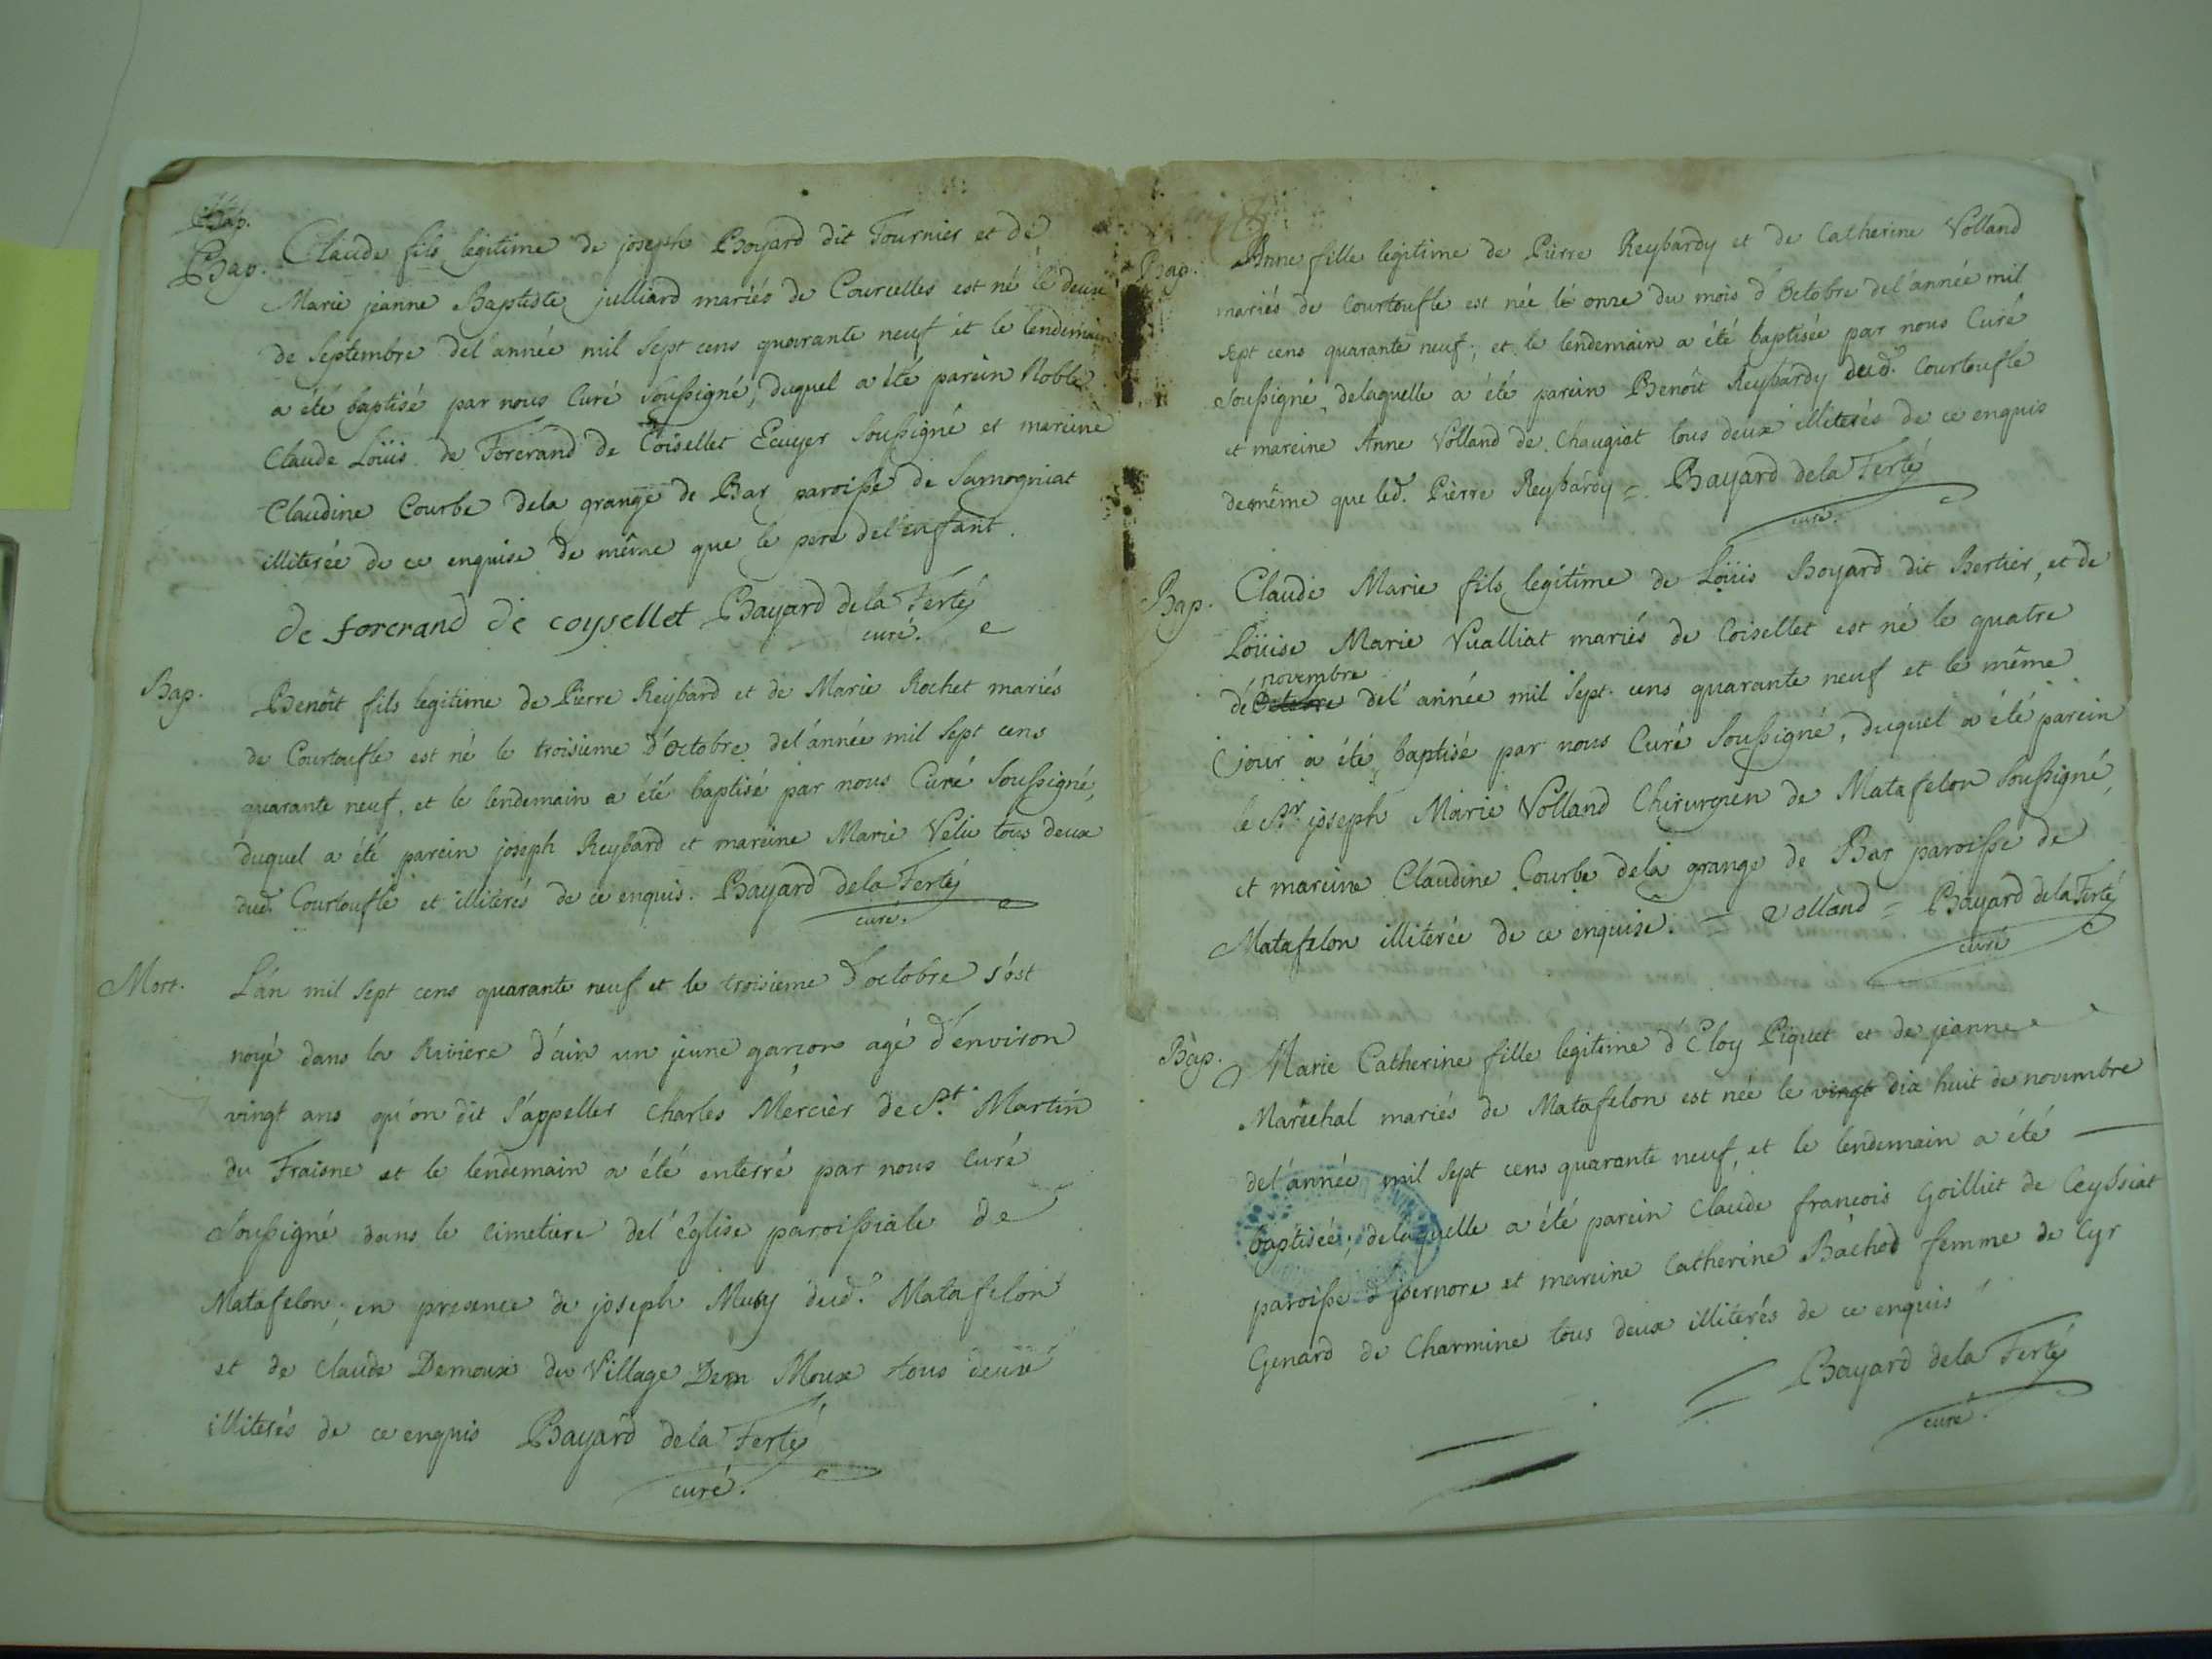 Bap.
Bap. Claude fils legitime de joseph Boyard dit Fournier et de
Marie jeanne Baptiste julliard mariés de Courcelles est né le deux
de Septembre del'année mil Sept cens quarante neuf et le lendemain
a été baptisé par nous Curé Soussigné, duquel a été parein Noble
Claude Loüis de Forcrand de Coisellet Ecuyer Soussigné et mareine
Claudine Courbe dela grange de Bar paroisse de Samogniat
illiterée de ce enquise de même que le pere del'enfant.
de forcrand de coysellet Bayard dela Ferté
curé.
Bap. Benoît fils legitime de Pierre Reybard et de Marie Rochet mariés
de Courtoufle est né le troisieme d'Octobre del'année mil Sept cens
quarante neuf, et le lendemain a été baptisé par nous Curé Soussigné,
duquel a été parein joseph Reybard et mareine Marie Velu tous deux
dud. Courtoufle et illiterés de ce enquis. Bayard dela Ferté
curé.
Mort. L'an mil Sept cens quarante neuf et le troisieme d'octobre s'est
noyé dans la Riviere d'ain un jeune garçon agé d'environ
vingt ans qu'on dit S'appeller Charles Mercier de St. Martin
du Fraisne et le lendemain a été enterré par nous Curé
Soussigné dans le cimetiere del'église paroissiale de
Matafelon, en presence de joseph Musy dud. Matafelon
et de Claude Demoux du Village Dem Moux tous deux
illiterés de ce enquis Bayard dela Ferté
curé.
Bap. Anne fille legitime de Pierre Reybardy et de Catherine Volland
mariés de Courtoufle est née le onze du mois d'Octobre del'année mil
sept cens quarante neuf; et le lendemain a été baptisée par nous Curé
Soussigné, delaquelle a été parein Benoît Reybardy dud. Courtoufle
et mareine Anne Volland de Chaugiat tous deux illiterés de ce enquis
demême que led. Pierre Reybardy = Bayard dela Ferté
curé.
Bap. Claude Marie fils legitime de Loüis Boyard dit Bertier, et de
Loüise Marie Vualliat mariés de Coisellet est né le quatre
novembre
de Octobre del'année mil Sept cens quarante neuf et le même
jour a été baptisé par nous Curé Soussigné, duquel a été parein
le Sr. joseph Marie Volland Chirurgien de Matafelon Soussigné,
et mareine Claudine Courbe dela grange de Bar paroisse de
Matafelon illiterée de ce enquise. = Volland = Bayard dela Ferté
curé
Bap. Marie Catherine fille legitime d'Eloy Piquet et de jeanne
Maréchal mariés de Matafelon est née le vingt dix huit de novembre
del'année mil Sept cens quarante neuf, et le lendemain a été
baptisée; delaquelle a été parein Claude francois Goilliet de Ceyssiat
paroisse d'jsernore et mareine Catherine Bachod femme de Cyr
Genard de Charmine tous deux illiterés de ce enquis
= Bayard dela Ferté
curé.